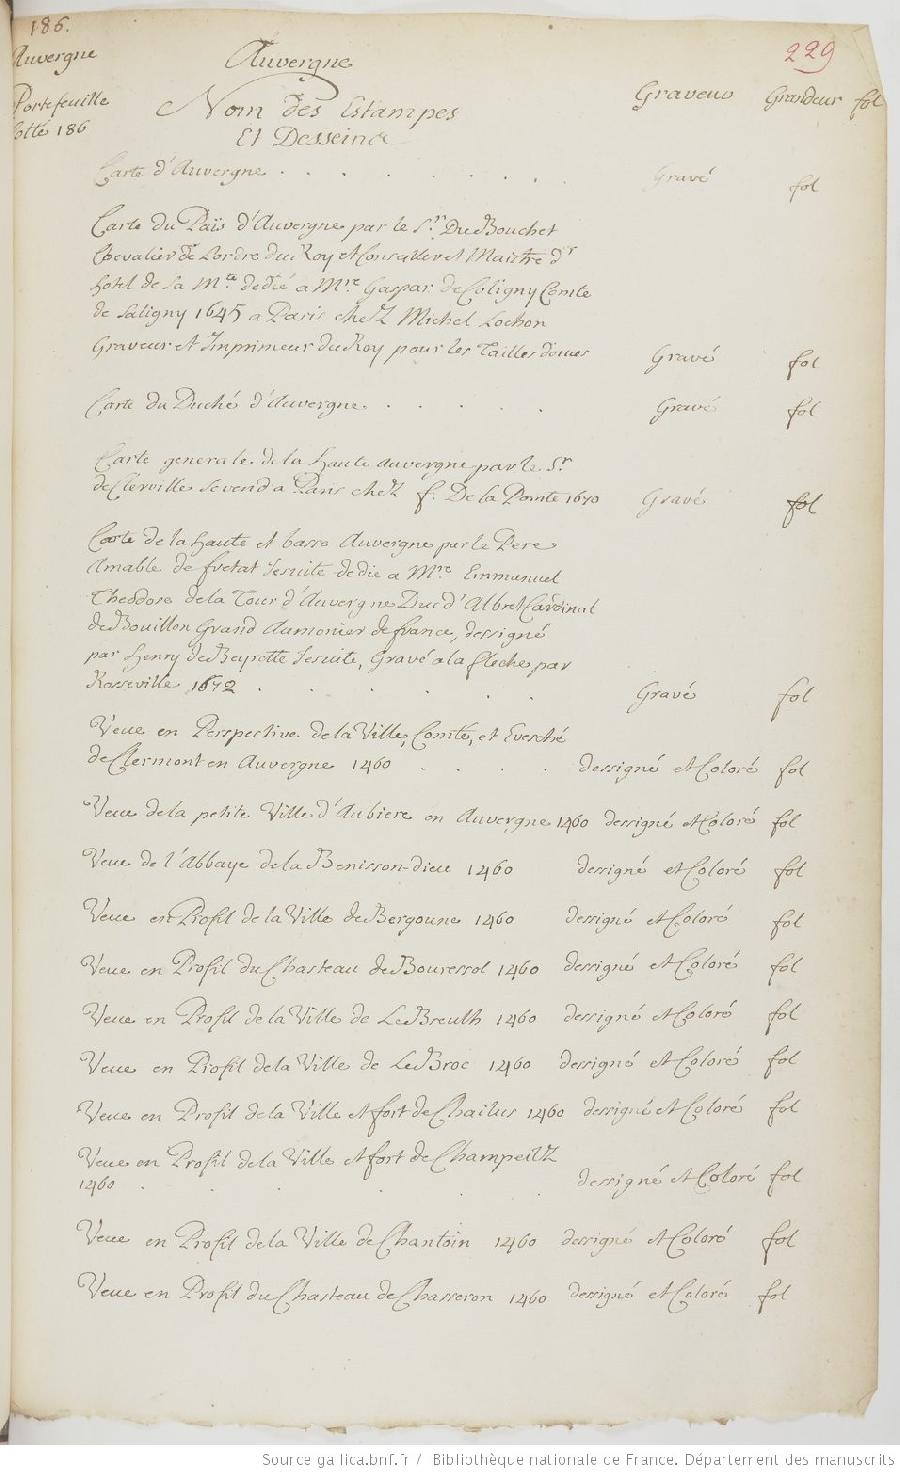 186.
229
Auvergne
Auvergne
Portefeuille
cotté 186
Nom des Estampes
Et Desseins
Graveur Grandeur fol
Carte d'Auvergne . . . . . . . Gravé fol
Carte du Païs d'Auvergne par le Sr. Du Bouchet
Chevalier de Lordre du Roy et Conseiller et Maitre d'
hotel de sa Mté dedié a Mre Gaspar de Coligny Comte
de Saligny 1645 a Paris chez Michel Lochon
Graveur et Imprimeur du Roy pour les Tailles douces Gravé fol
Carte du Duché d'Auvergne . . . . Gravé fol
Carte generale de la haute auvergne par le Sr
de Clerville se vend a Paris chez f. De la Pointe 1670 Gravé fol
Carte de la haute et basse Auvergne par le Pere
Amable de fretat Jesuite dedie a Mre Emmanuel
Theodose de la Tour d'Auvergne Duc d'Albret Cardinal
de Bouillon Grand Aumonier de france, dessigné
par Henry de Beyrette Jesuite, Gravé a la fleche par
Rosseville 1672 . . . . . . Gravé fol
Veue en Perspective de la Ville, Comté, et Evesché
de Clermont en Auvergne 1460 . . . dessigné et Coloré fol
Veue de la petite Ville d'Aubiere en Auvergne 1460 dessigné et Coloré fol
Veue de l'Abbaye de la Benisson-dieu 1460 dessigné et Coloré fol
Veue en Profil de la Ville de Bergoune 1460 dessigné et Coloré fol
Veue en Profil du Chasteau de Bouressol 1460 dessigné et Coloré fol
Veue en Profil de la Ville de Le Breulh 1460 dessigné et Coloré fol
Veue en Profil de la Ville de Le Broc 1460 dessigné et Coloré fol
Veue en Profil de la Ville et fort de Chailus 1460 dessigné et Coloré fol
Veue en Profil de la Ville et fort de Champeilz
1460 . . . . . dessigné et Coloré fol
Veue en Profil de la Ville de Chantoin 1460 dessigné et Coloré fol
Veue en Profil du Chasteau de Chasseron 1460 dessigné et Coloré fol
Source gallica.bnf.fr / Bibliothèque nationale de France. Département des manuscrits